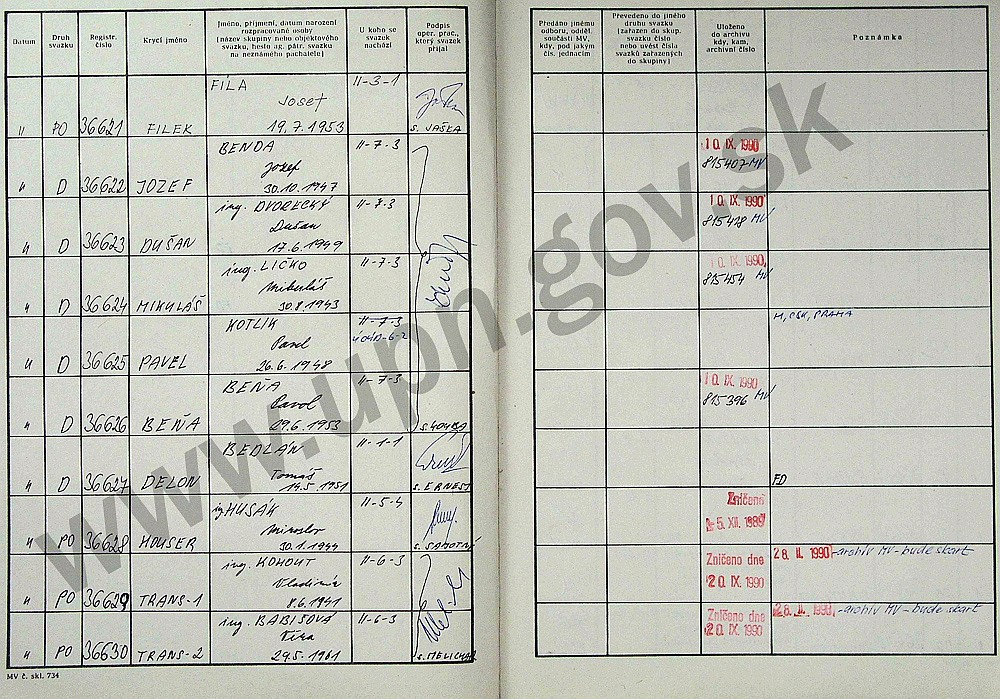 Datum
Druh svazku
Registr. číslo
Krycí jméno
Jméno, příjmení, datum narození
rozpracované osoby
(název skupiny nebo objektového
svazku, heslo ag. pátr. svazku
na neznámého pachatele)
U koho se
svazek
nachází
Podpis
oper. prac.,
který svazek
přijal
Předáno jinému
odboru, odděl.
součásti MV,
kdy, pod jakým
čís. jednacím
Převedeno do jiného
druhu svazku
(zařazen do skup.
svazku číslo
nebo uvést čísla
svazků zařazených
do skupiny)
Uloženo
do archivu
kdy, kam,
archivní číslo
Poznámka
FÍLA II-3-1
Josef
" PO 36621 FILEK 19.7.1953 s. JAŠKA
BENDA II-7-3 10. IX. 1990
Jozef 815407-MV
" D 36622 JOZEF 30.10.1947
ing. DVORECKÝ II-7-3 10. IX. 1990
Dušan 815428 MV
" D 36623 DUŠAN 17.6.1949
ing. LIČKO II-7-3 10. IX. 1990
Mikuláš 815454 MV
" D 36624 MIKULÁŠ 30.8.1943
KOTLIK II-7-3 M, ČSK, PRAHA
Pavel
" D 36625 PAVEL 26.6.1948
BEŇA II-7-3 10. IX. 1990
Pavol 815396 MV
" D 36626 BEŇA 29.6.1953
BEDLÁN II-1-1
Tomáš
" D 36627 DELON 19.5.1951 s. ERNEST FD
ing HUSÁK II-5-4 Zničeno
Miroslav -5. XII. 1989
" PO 36628 HOUSER 30.1.1944 s. SAMOTNÝ
ing. KOHOUT II-6-3 Zničeno dne 28. II. 1990 -archiv MV-bude skart
Vladimír 20. IX. 1990
" PO 36629 TRANS-1 8.6.1941
ing. BABIŠOVÁ II-6-3 Zničeno dne 28. II. 1990 -archiv MV-bude skart
Věra 20. IX. 1990
" PO 36630 TRANS-2 29.5.1961 s. MELICHAR
MV č. skl. 734
www.upn.gov.sk